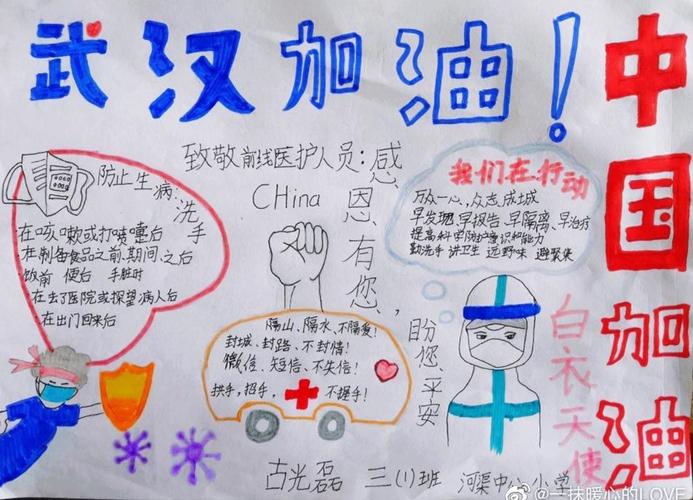 武汉加油！
中国加油
致敬前线医护人员：感恩有您，盼您平安
CHina
防止生病：洗手
在咳嗽或打喷嚏后
·在制备食品之前、期间、之后
饭前 便后 手脏时
·在去了医院或探望病人后
·在出门回来后
我们在行动
万众一心，众志成城
早发现、早报告、早隔离、早治疗
提高科学防护意识和能力
勤洗手 讲卫生 远野味 避聚集
隔山、隔水、不隔爱！
封城、封路、不封情！
微信、短信、不失信！
拱手，招手， 不握手！
白衣天使
古光磊 三(1)班 河渠中心小学
@一抹暖心的LOVE